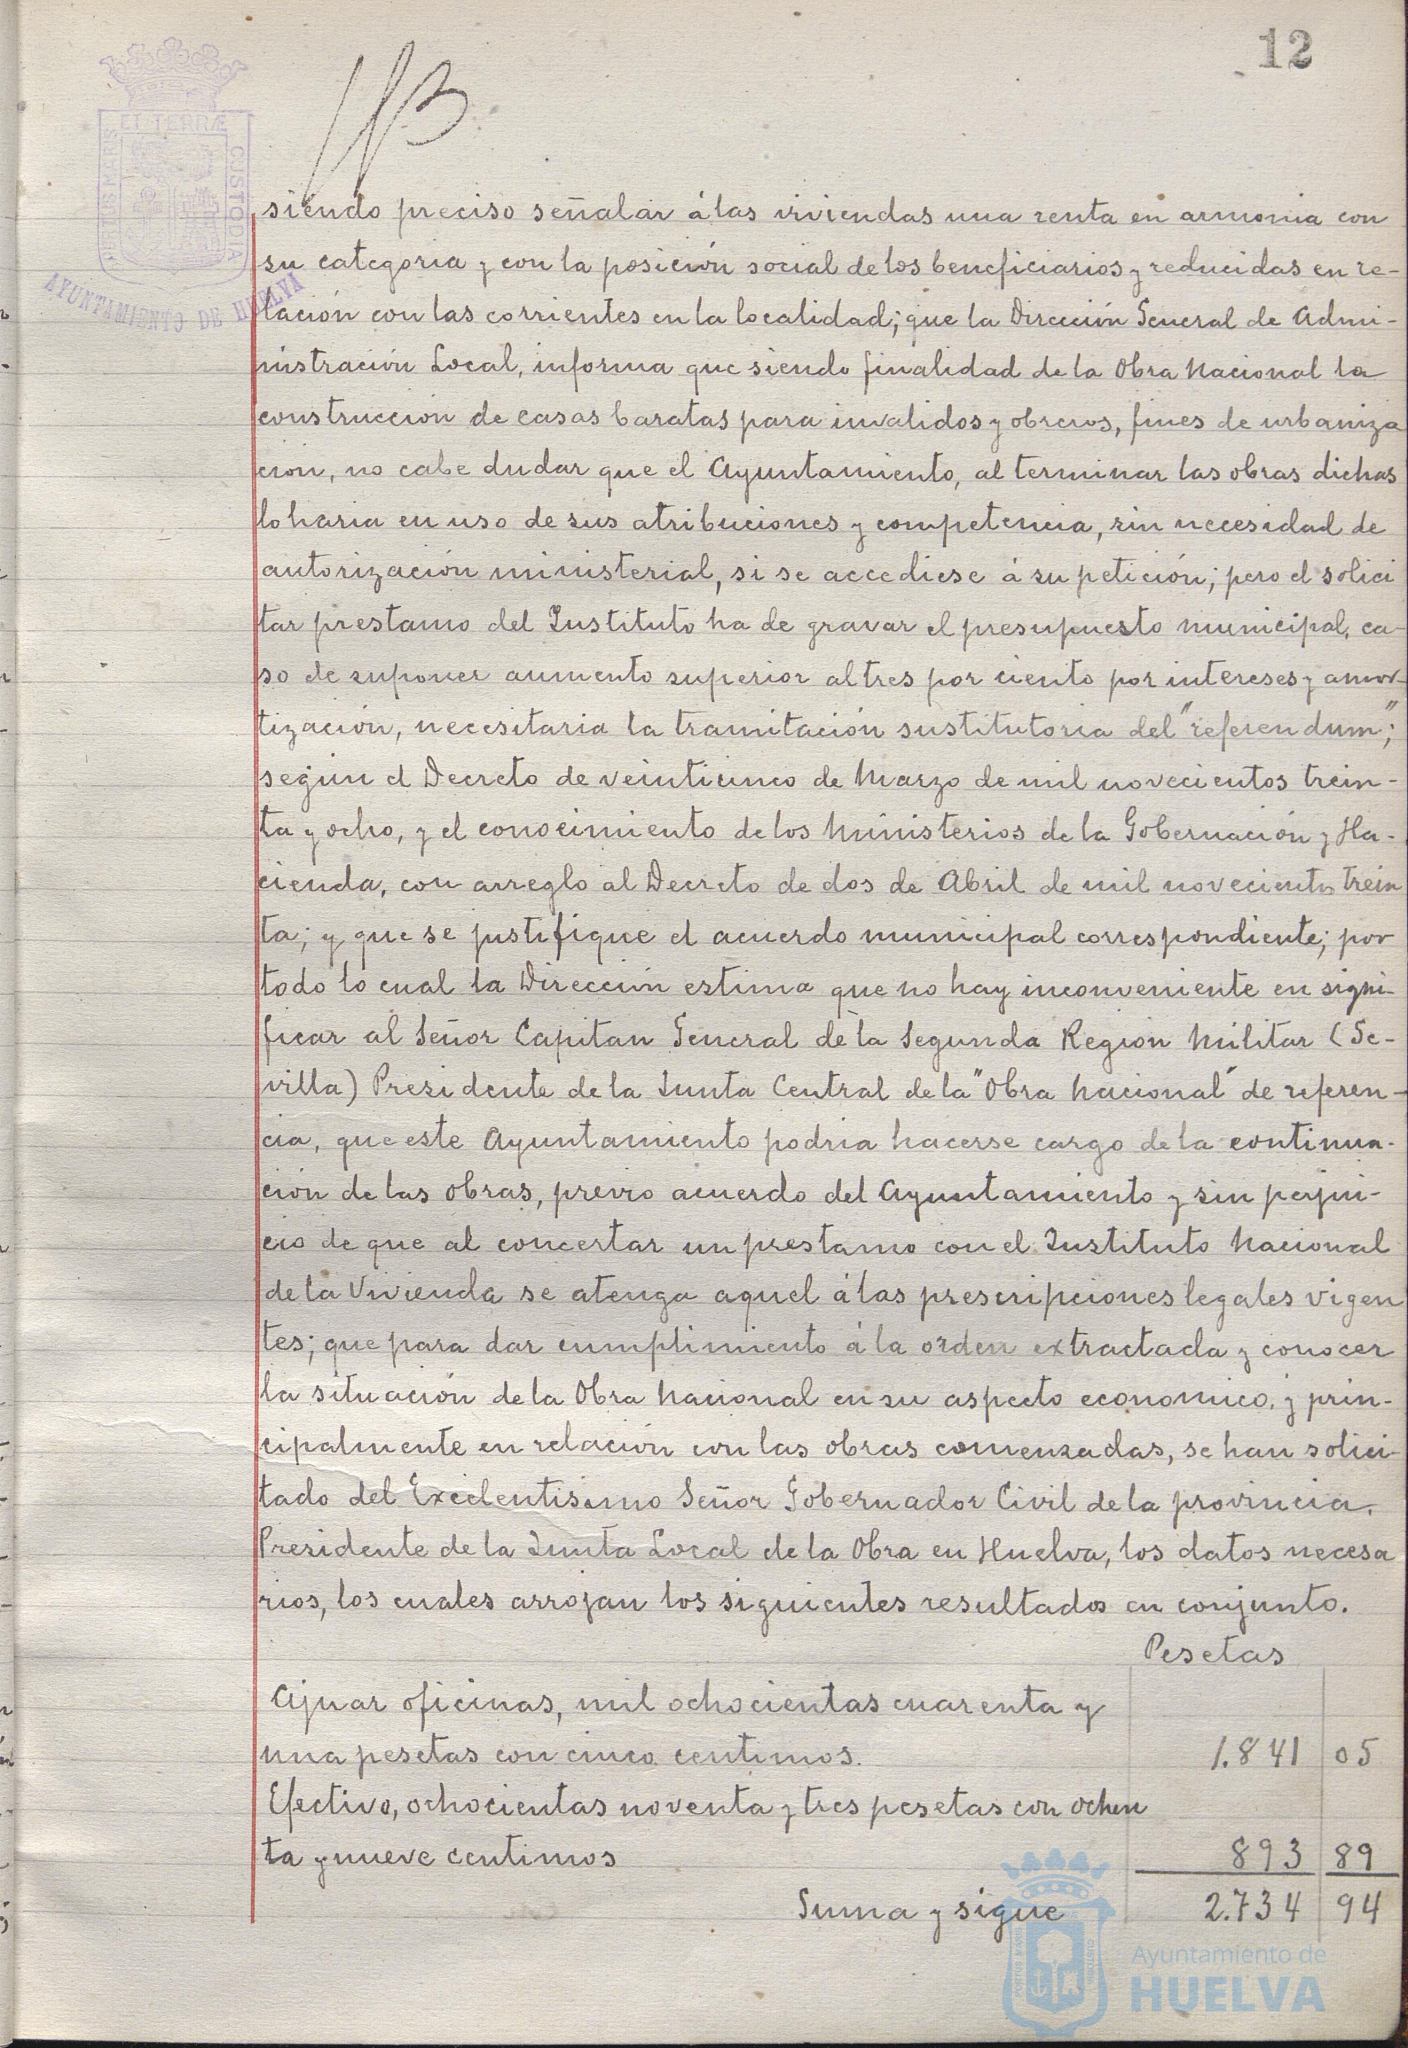 12
ET TERRÆ
PORTUS MARIS
CUSTODIA
AYUNTAMIENTO DE HUELVA
siendo preciso señalar á las viviendas una renta en armonia con
su categoria y con la posición social de los beneficiarios y reducidas en re-
lación con las corrientes en la localidad; que la Dirección General de Admi-
nistración Local, informa que siendo finalidad de la Obra Nacional la
construcción de casas baratas para invalidos y obreros, fines de urbaniza
ción, no cabe dudar que el Ayuntamiento, al terminar las obras dichas
lo haria en uso de sus atribuciones y competencia, sin necesidad de
autorización ministerial, si se accediese á su petición; pero el solici
tar prestamo del Instituto ha de gravar el presupuesto municipal, ca-
so de suponer aumento superior al tres por ciento por intereses y amor-
tización, necesitaria la tramitación sustitutoria del "referendum";
según el Decreto de veinticinco de Marzo de mil novecientos trein-
ta y ocho, y el conocimiento de los Ministerios de la Gobernación y Ha-
cienda, con arreglo al Decreto de dos de Abril de mil novecientos trein
ta; y que se justifique el acuerdo municipal correspondiente; por
todo lo cual la Dirección estima que no hay inconveniente en signi-
ficar al Señor Capitan General de la Segunda Región Militar (Se-
villa) Presidente de la Junta Central de la "Obra Nacional" de referen-
cia, que este Ayuntamiento podria hacerse cargo de la continua-
ción de las obras, previo acuerdo del Ayuntamiento y sin perjui-
cio de que al concertar un prestamo con el Instituto Nacional
de la Vivienda se atenga aquel á las prescripciones legales vigen
tes; que para dar cumplimiento á la orden extractada y conocer
la situación de la Obra Nacional en su aspecto economico, y prin-
cipalmente en relación con las obras comenzadas, se han solici-
tado del Excelentisimo Señor Gobernador Civil de la provincia,
Presidente de la Junta Local de la Obra en Huelva, los datos necesa
rios, los cuales arrojan los siguientes resultados en conjunto.
Pesetas
Ajuar oficinas, mil ochocientas cuarenta y
una pesetas con cinco centimos. 1.841 05
Efectivo, ochocientas noventa y tres pesetas con ochen
ta y nueve centimos 893 89
Suma y sigue 2.734 94
Ayuntamiento de
HUELVA